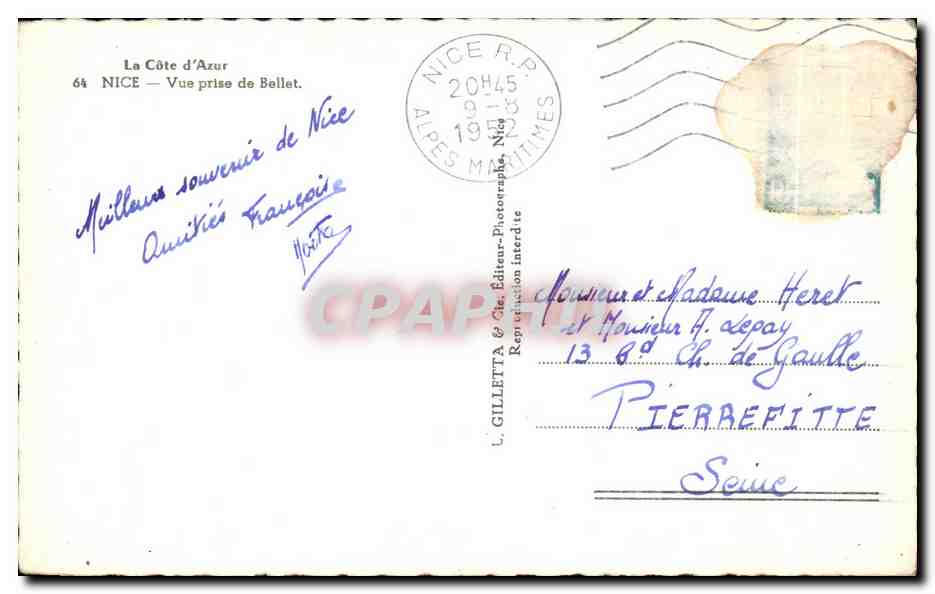 La Côte d'Azur
64 NICE — Vue prise de Bellet.
Meilleurs souvenir de Nice
Amitiés Françoise
NICE R.P.
20H45
9-8
1952
ALPES MARITIMES
L. GILLETTA & Cie, Éditeur-Photographe, Nice
Reproduction interdite
Monsieur et Madame Heret
et Monsieur A. Lepay
13 Bd Ch. de Gaulle
PIERREFITTE
Seine